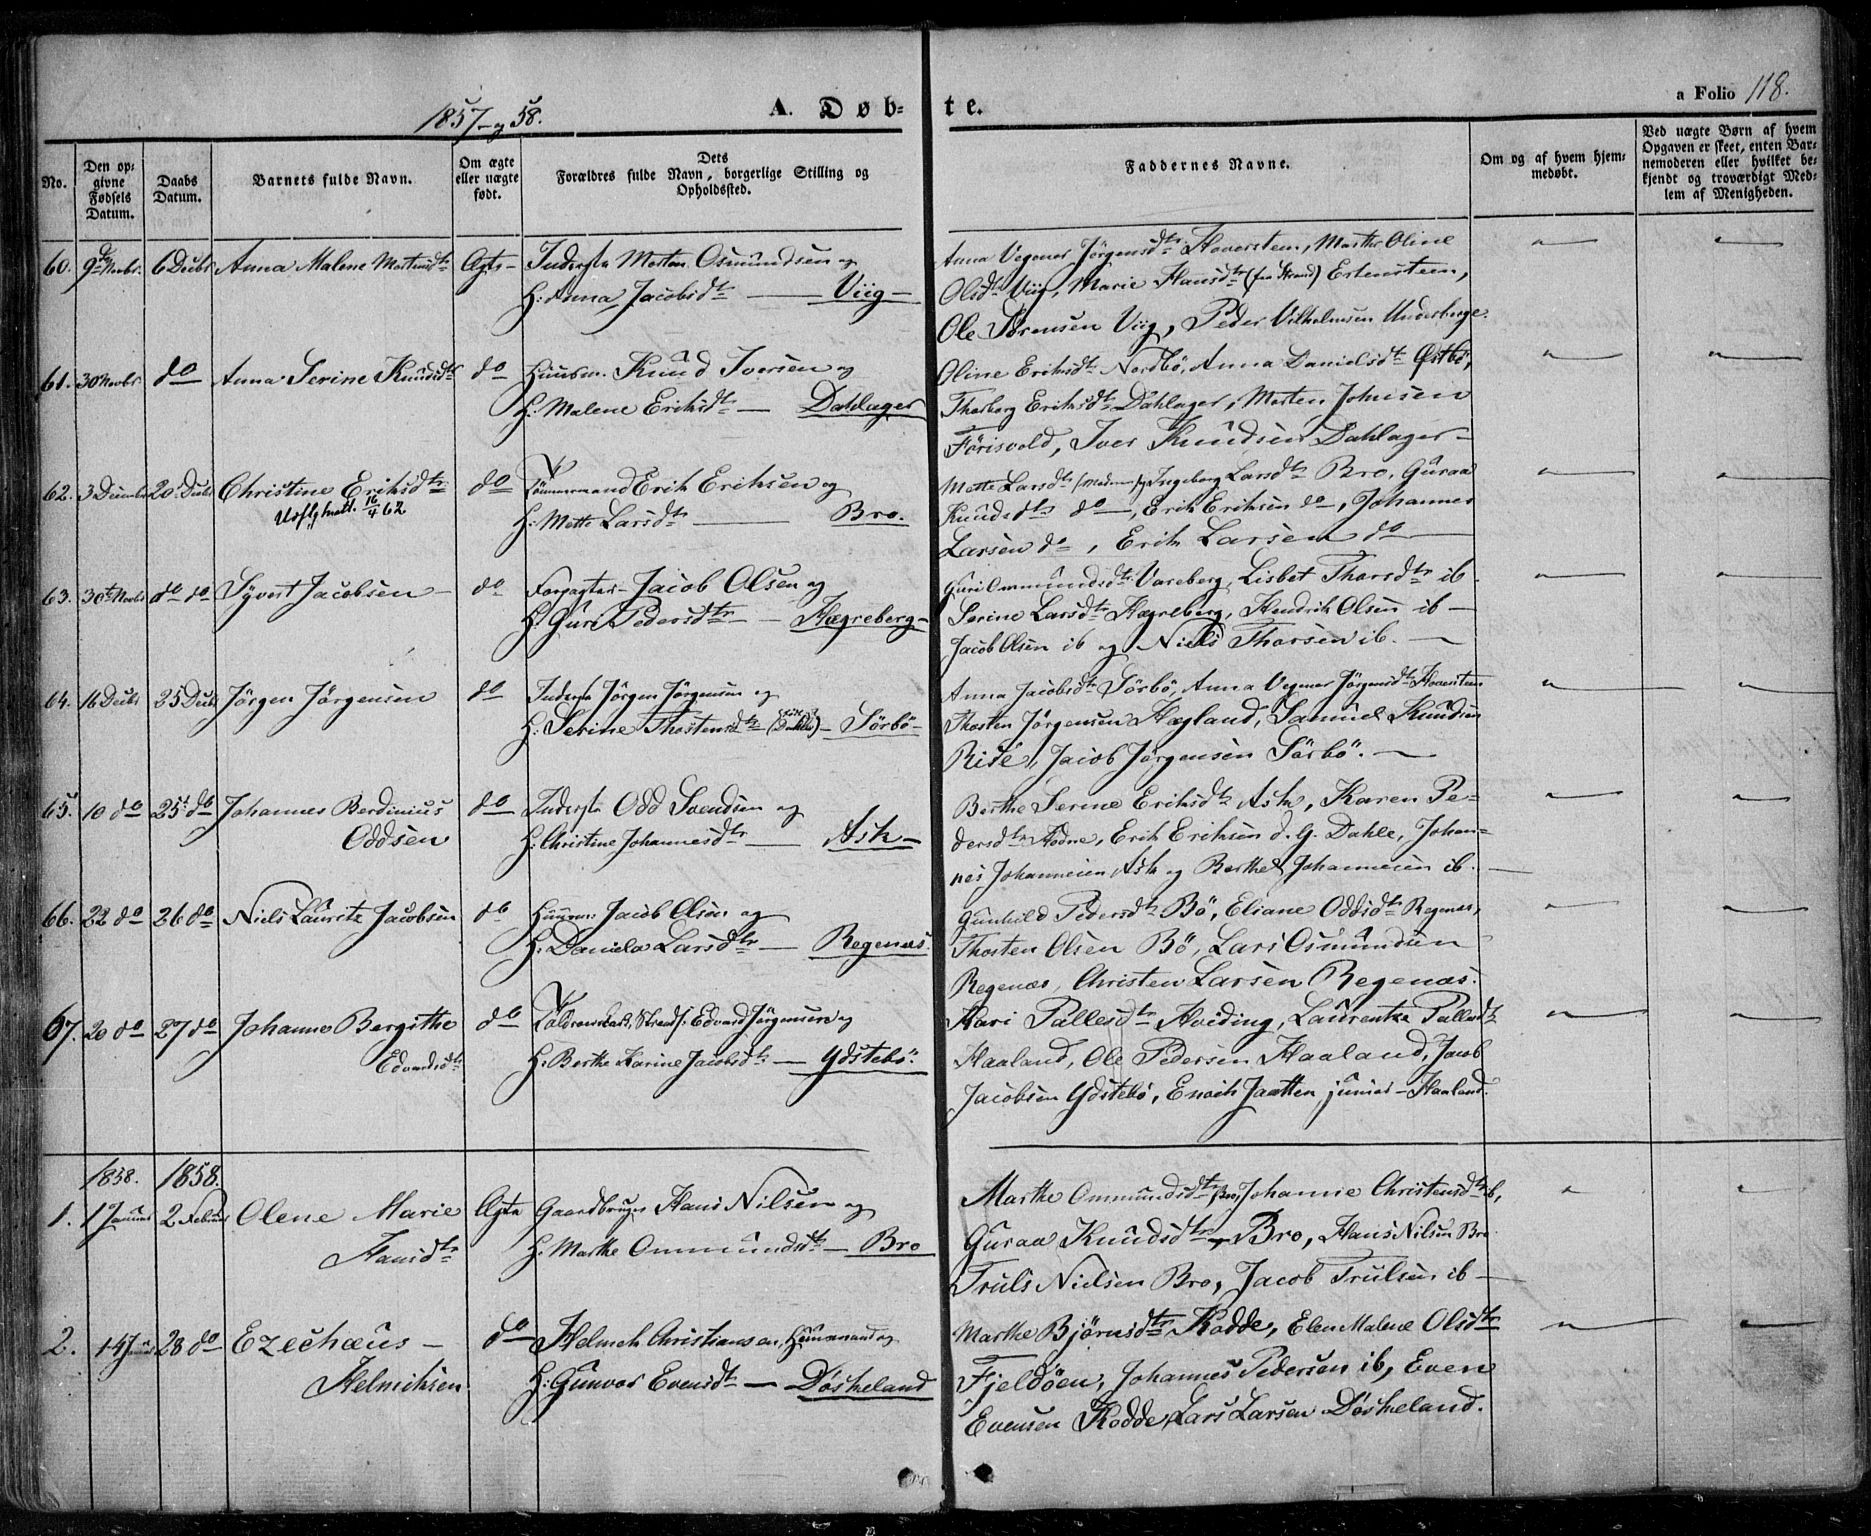 1857 og 58.
A. Døbte.
a Folio 118.
No.
Den opgivne Fødsels Datum.
Daabs Datum.
Barnets fulde Navn.
Om ægte eller uægte født.
Dets Forældres fulde Navn, borgerlige Stilling og Opholdssted.
Faddernes Navne.
Om og af hvem hjemmedøbt.
Ved uægte Børn af hvem Opgaven er skeet, enten Barnemoderen eller hvilket bekjendt og troværdigt Medlem af Menigheden.
60. 9de Novbr. 6 Decbr Anna Malene Mortensdtr Ægte- Inderste Morten Osmundsen og
H: Anna Jacobsdtr — Viig —
Anna Vegener Jørgensdtr Hoversteen, Marthe Oline
Olsdtr Viig, Marie Hansdtr (fra Strand) Estensteen,
Ole Sørensen Viig, Peder Vilhelmsen Underberge.
61. 30 Novbr. do Anna Serine Knudsdtr do Huusm. Knud Iversen og
H: Malene Eriksdtr — Dahlager
Oline Eriksdtr Nordbö, Anna Danielsdtr Østbö,
Thorborg Eriksdtr Dahlager, Morten Johnsen
Förisvold, Iver Knudsen Dahlager —
62. 3 Decembr 20 Decbr Christine Eriksdtr do Tömmermand Erik Eriksen og
Udflytnatt. 16/4 62
H: Mette Larsdtr — Bro.
Mette Larsdtr (Moderen) og Ingeborg Larsdtr Bro, Guraa
Knudsdtr do —, Erik Eriksen do —, Johannes
Larsen do —, Erik Larsen do —
63. 30te Novbr do do Syvert Jacobsen — do Forpagter Jacob Olsen og
H: Guri Pedersdtr — Hægreberg —
Guri Ommundsdtr Vareberg, Lisbet Thorsdtr ib
Serine Larsdtr Hægreberg, Hendrik Olsen ib —
Jacob Olsen ib og Niels Thorsen ib. —
64. 16 Decbr 25 Decbr Jörgen Jörgensen do Inderste Jörgen Jörgensen og
H: Serine Thostensdtr — Sörbö —
Anna Jacobsdtr Sörbö, Anna Vegener Jörgensdtr Hoversteen
Thosten Jörgensen Hægland, Samuel Knudsen
Rise, Jacob Jörgensen Sörbö. —
65. 10 do 25. do Johannes Berdinius do Inderste Odd Svendsen og
Oddsen
H: Christine Johannesdtr — Ask —
Berthe Serine Eriksdtr Ask, Karen Pe-
dersdtr Hodne, Erik Eriksen d. G. Dahle, Johan-
nes Johannesen Ask og Berthel Johannesen ib. —
66. 22 do 26 do Niels Lauritz Jacobsen do Huusm: Jacob Olsen og
H: Daniela Larsdtr — Regenæs.
Gunhild Pedersdtr Bö, Eliane Oddsdtr Regenæs,
Thosten Olsen Bö, Lars Osmundsen
Regenæs, Christen Larsen Regenæs.
67. 20 do 27 do Johanne Bergithe do Edvard Jörgensen og
Edvardsdtr
H: Berthe Karine Jacobsdtr — Ydstebö.
Kari Pallesdtr Hviding, Laurentze Pallesdtr
Haaland, Ole Pedersen Haaland, Jacob
Jacobsen Ydstebö, Enoch Jaatten junior — Haaland.
1858. 1858.
1. 1 Januar 2 Februar Olene Marie Ægte Gaardbruger Hans Nilsen og
Hansdtr
H: Marthe Ommundsdtr — Bro
Marthe Ommundsdtr Bro, Johanne Christensdtr ib,
Guraa Knudsdtr — Bro, Hans Nilsen Bro
Truls Nielsen Bro, Jacob Trulsen ib —
2. 14 Jan 28 do Ezechæus — do Helmich Christiansen, Huusmand og
Helmichsen
H: Gunvor Evensdtr — Döskeland
Marthe Björnsdtr Kodde, Elen Malene Olsdtr
Fjeldöen, Johannes Pedersen ib, Even
Evensen Kodde, Lars Larsen Döskeland.